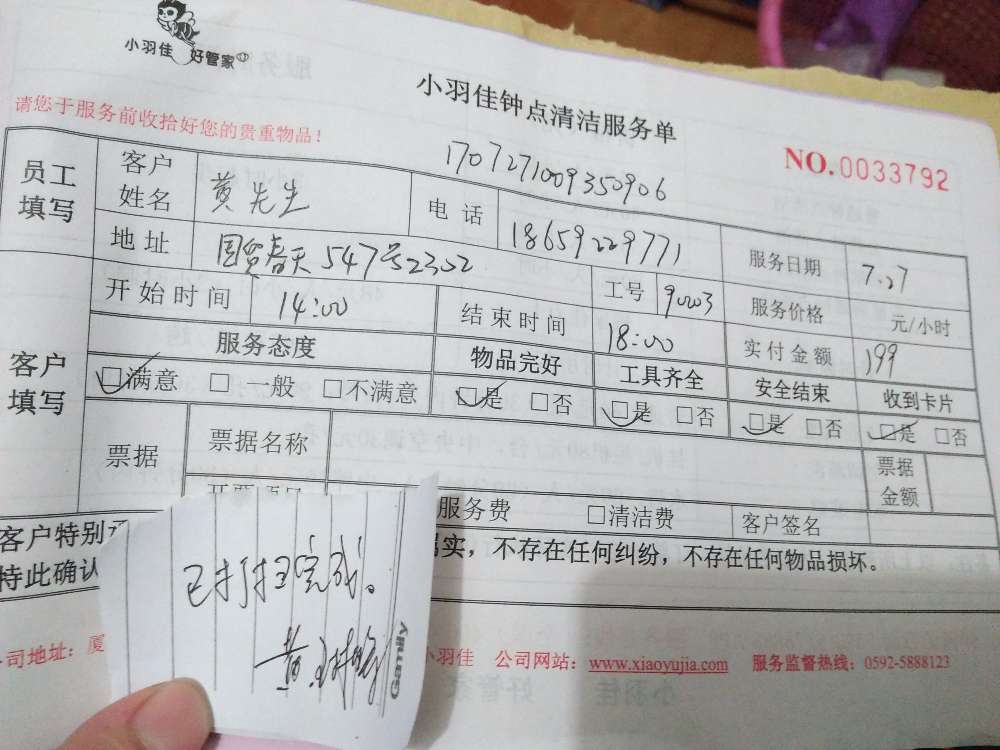 小羽佳 好管家
小羽佳钟点清洁服务单
请您于服务前收拾好您的贵重物品！
1707271009350906
NO.0033792
员工填写 客户姓名 黄先生 电话 18659229771 服务日期 7.27
地址 国贸春天547号2302 工号 9003 服务价格 元/小时
开始时间 14:00 结束时间 18:00 实付金额 199
客户填写 服务态度 物品完好 工具齐全 安全结束 收到卡片
☑满意 □一般 □不满意 ☑是 □否 ☑是 □否 ☑是 □否 ☑是 □否
票据 票据名称 票据金额
服务费 □清洁费 客户签名
客户特别
属实，不存在任何纠纷，不存在任何物品损坏。
特此确认
已打扫完成。
黄
Gambly
司地址：厦
小羽佳 公司网站：www.xiaoyujia.com 服务监督热线：0592-5888123